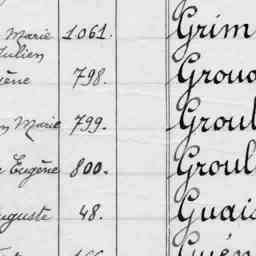 Marie 1061. Grim
Julien
ène 798. Grou
n Marie 799. Groul
e Eugène 800. Groul
uguste 48. Guais